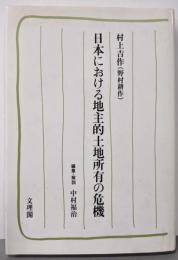 村上吉作(野村耕作)
日本における地主的土地所有の危機
編集・解説 中村福治
文理閣